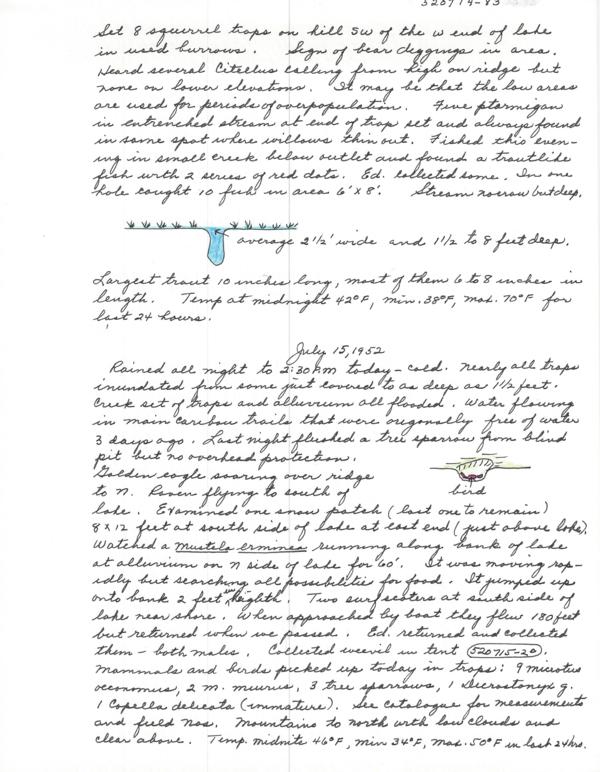 520714-83
Set 8 squirrel traps on hill SW of the W end of lake
in used burrows. Sign of bear diggings in area.
Heard several Citellus calling from high on ridge but
none on lower elevations. It may be that the low areas
are used for periods of overpopulation. Five ptarmigan
in entrenched stream at end of trap set and always found
in same spot where willows thin out. Fished this even-
ing in small creek below outlet and found a troutlike
fish with 2 series of red dots. Ed. collected some. In one
hole caught 10 fish in area 6'x8'. Stream narrow but deep.
average 2½' wide and 1½ to 8 feet deep.
Largest trout 10 inches long, most of them 6 to 8 inches in
length. Temp at midnight 42°F, min. 38°F, max. 70°F for
last 24 hours.
July 15, 1952
Rained all night to 2:30 PM today - cold. Nearly all traps
inundated from some just covered to as deep as 1½ feet.
Creek set of traps and alluvium all flooded. Water flowing
in main caribou trails that were origonally free of water
3 days ago. Last night flushed a tree sparrow from blind
pit but no overhead protection.
Golden eagle soaring over ridge
to N. Raven flying to south of
bird
lake. Examined one snow patch (last one to remain)
8 x 12 feet at south side of lake at east end (just above lake).
Watched a Mustela erminea running along bank of lake
at alluvium on N side of lake for 60'. It was moving rap-
idly but searching all possibilities for food. It jumped up
onto bank 2 feet in heighth. Two surf scoters at south side of
lake near shore. When approached by boat they flew 180 feet
but returned when we passed. Ed. returned and collected
them - both males. Collected weevil in tent (520715-20).
Mammals and birds picked up today in traps: 9 Microtus
oeconomus, 2 M. miurus, 3 tree sparrows, 1 Dicrostonyx g.
1 Capella delicata (immature). See catalogue for measurements
and field nos. Mountains to north with low clouds and
clear above. Temp. midnite 46°F, min 34°F, max. 50°F in last 24 hrs.